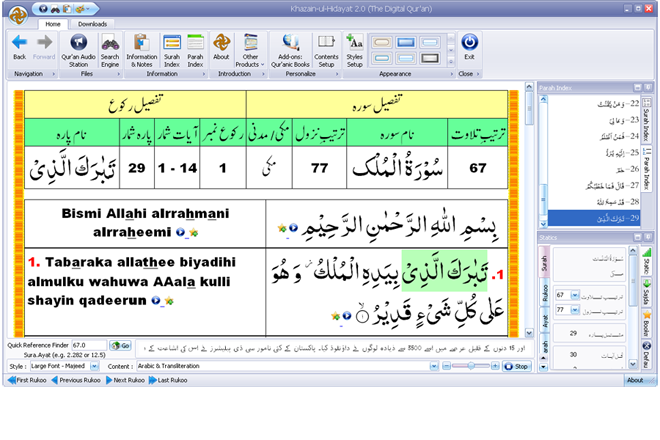 Khazain-ul-Hidayat 2.0 (The Digital Qur'an)
Home Downloads
Back Forward Qur'an Audio Station Search Engine Information & Notes Surah Index Parah Index About Other Products Add-ons: Qur'anic Books Contents Setup Styles Setup Exit
Navigation Files Information Introduction Personalize Appearance Close
تفصیل سورہ تفصیل رکوع
ترتیبِ تلاوت نام سورہ ترتیبِ نزول مکی/مدنی رکوع نمبر آیات شمار پارہ شمار نام پارہ
67 سُوْرَةُ الْمُلْک 77 مکی 1 1 - 14 29 تَبٰرَكَ الَّذِیْ
بِسْمِ اللّٰهِ الرَّحْمٰنِ الرَّحِیْمِ
Bismi Allahi alrrahmani
alrraheemi
1. تَبٰرَكَ الَّذِیْ بِیَدِهِ الْمُلْكُ ؗ وَ هُوَ
عَلٰی كُلِّ شَیْءٍ قَدِیْرُ ۝۱
1. Tabaraka allathee biyadihi
almulku wahuwa AAala kulli
shayin qadeerun
Parah Index
22- وَ مَنْ یَّقْنُتْ
23- وَ مَا لِیَ
24- فَمَنْ اَظْلَمُ
25- اِلَیْهِ یُرَدُّ
26- حٰمٓ
27- قَالَ فَمَا خَطْبُكُمْ
28- قَدْ سَمِعَ اللّٰهُ
29- تَبٰرَكَ الَّذِیْ
Surah Index
Parah Index
Statics
Surah
Rukoo
Ayat
arah
67
77
29
30
Static
Sajda
Books
Defau
Quick Reference Finder 67.0 Go
Sura.Ayat (e.g. 2.282 or 12.5)
Style : Large Font - Majeed Content : Arabic & Transliteration Stop
First Rukoo Previous Rukoo Next Rukoo Last Rukoo About